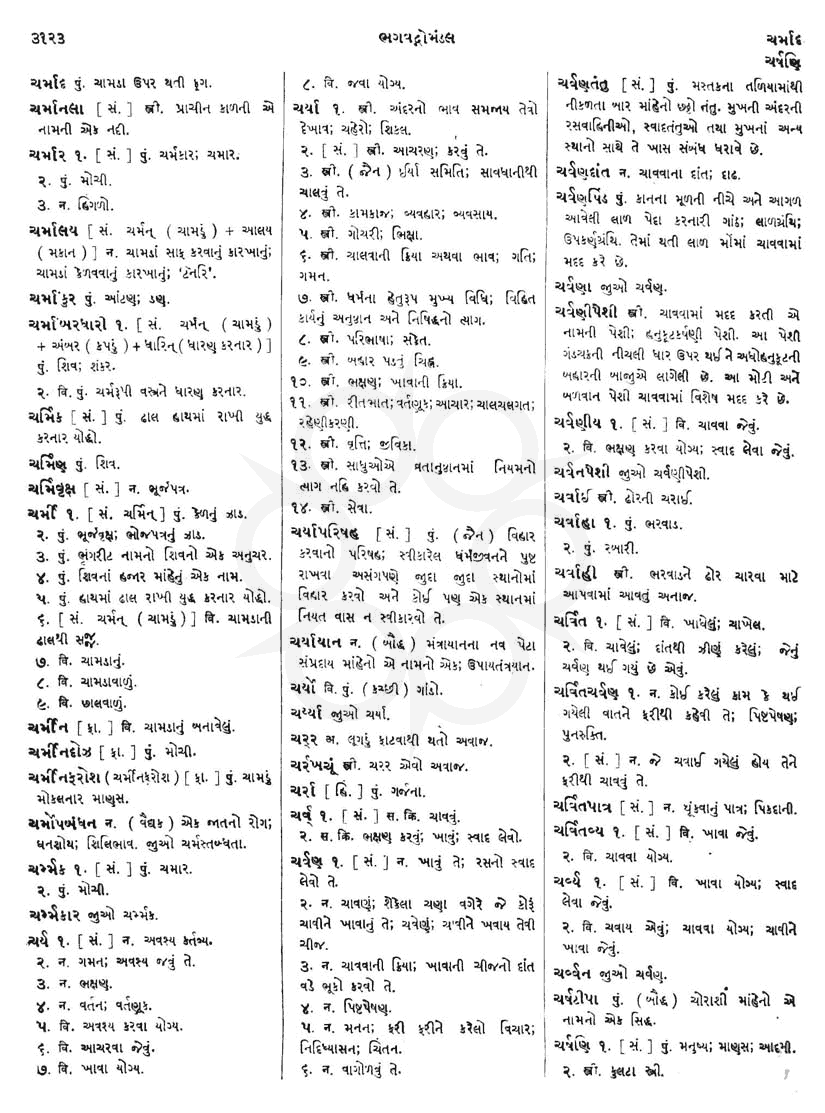 ૩૧૨૩
ભગવદ્ગોમંડલ
ચર્માદ
ચર્ષણિ
ચર્માદ પું. ચામડા ઉપર થતી ફૂગ.
ચર્માનલા [ સં. ] સ્ત્રી. પ્રાચીન કાળની એ
નામની એક નદી.
ચર્માર ૧. [ સં. ] પું. ચર્મકાર; ચમાર.
૨. પું. મોચી.
૩. ન. હિંગળો.
ચર્માલય [ સં. ચર્મન્ ( ચામડું ) + આલય
( મકાન ) ] ન. ચામડાં સાફ કરવાનું કારખાનું;
ચામડાં કેળવવાનું કારખાનું; ‘ટૅનરિ’.
ચર્માંકુર પું. આંટણ; ડણ.
ચર્માંબરધારી ૧. [ સં. ચર્મન્ ( ચામડું )
+ અંબર ( કપડું ) + ધારિન્ ( ધારણ કરનાર ) ]
પું. શિવ; શંકર.
૨. વિ. પું. ચર્મરૂપી વસ્ત્રને ધારણ કરનાર.
ચર્મિક [ સં. ] પું. ઢાલ હાથમાં રાખી યુદ્ધ
કરનાર યોદ્ધો.
ચર્મિણ પું. શિવ.
ચર્મિવૃક્ષ [ સં. ] ન. ભૂર્જપત્ર.
ચર્મી ૧. [ સં. ચર્મિન્ ] પું. કેળનું ઝાડ.
૨. પું. ભૂર્જવૃક્ષ; ભોજપત્રનું ઝાડ.
૩. પું. ભૃંગરીટ નામનો શિવનો એક અનુચર.
૪. પું. શિવનાં હજાર માંહેનું એક નામ.
૫. પું. હાથમાં ઢાલ રાખી યુદ્ધ કરનાર યોદ્ધો.
૬. [ સં. ચર્મન્ ( ચામડું ) ] વિ. ચામડાની
ઢાલથી સજ્જ.
૭. વિ. ચામડાનું.
૮. વિ. ચામડાવાળું.
૯. વિ. છાલવાળું.
ચર્મીન [ ફા. ] વિ. ચામડાનું બનાવેલું.
ચર્મીનદોઝ [ ફા. ] પું. મોચી.
ચર્મીનફરોશ (ચર્મીનફરોશ) [ ફા. ] પું. ચામડું
મોકલનાર માણસ.
ચર્મોપબંધન ન. ( વૈદ્યક ) એક જાતનો રોગ;
ધનશોથ; શિલિભાવ. જુઓ ચર્મસ્તબ્ધતા.
ચર્મ્મક ૧. [ સં. ] પું. ચમાર.
૨. પું. મોચી.
ચર્મ્મકાર જુઓ ચર્મ્મક.
ચર્ય ૧. [ સં. ] ન. અવશ્ય કર્તવ્ય.
૨. ન. ગમન; અવશ્ય જવું તે.
૩. ન. ભક્ષણ.
૪. ન. વર્તન; વર્તણૂક.
૫. વિ. અવશ્ય કરવા યોગ્ય.
૬. વિ. આચરવા જેવું.
૭. વિ. ખાવા યોગ્ય.
૮. વિ. જવા યોગ્ય.
ચર્યા ૧. સ્ત્રી. અંદરનો ભાવ સમજાય તેવો
દેખાવ; ચહેરો; શિકલ.
૨. [ સં. ] સ્ત્રી. આચરણ; કરવું તે.
૩. સ્ત્રી. ( જૈન ) ઈર્યા સમિતિ; સાવધાનીથી
ચાલવું તે.
૪. સ્ત્રી. કામકાજ; વ્યવહાર; વ્યવસાય.
૫. સ્ત્રી. ગોચરી; ભિક્ષા.
૬. સ્ત્રી. ચાલવાની ક્રિયા અથવા ભાવ; ગતિ;
ગમન.
૭. સ્ત્રી. ધર્મના હેતુરૂપ મુખ્ય વિધિ; વિહિત
કાર્યનું અનુષ્ઠાન અને નિષિદ્ધનો ત્યાગ.
૮. સ્ત્રી. પરિભાષા; સંકેત.
૯. સ્ત્રી. બહાર પડતું ચિહ્ન.
૧૦. સ્ત્રી. ભક્ષણ; ખાવાની ક્રિયા.
૧૧. સ્ત્રી. રીતભાત; વર્તણૂક; આચાર; ચાલચલગત;
રહેણીકરણી.
૧૨. સ્ત્રી. વૃત્તિ; જીવિકા.
૧૩. સ્ત્રી. સાધુઓએ વતાનુષ્ઠાનમાં નિયમનો
ત્યાગ નહિ કરવો તે.
૧૪. સ્ત્રી. સેવા.
ચર્યાપરિષહ [ સં. ] પું. ( જૈન ) વિહાર
કરવાનો પરિષહ; સ્વીકારેલ ધર્મજીવનને પુષ્ટ
રાખવા અસંગપણે જુદા જુદા સ્થાનોમાં
વિહાર કરવો અને કોઈ પણ એક સ્થાનમાં
નિયત વાસ ન સ્વીકારવો તે.
ચર્યાયાન ન. ( બૌદ્ધ ) મંત્રાયાનના નવ પેટા
સંપ્રદાય માંહેનો એ નામનો એક; ઉપાયતંત્રયાન.
ચર્યો વિ. પું. ( કચ્છી ) ગાંડો.
ચર્ય્યા જુઓ ચર્યા.
ચરૂર અ. લૂગડું ફાટવાથી થતો અવાજ.
ચરૂંખચૂં સ્ત્રી. ચરર એવો અવાજ.
ચર્રા [ હિં. ] પું. ગર્જના.
ચર્વ્ ૧. [ સં. ] સ. ક્રિ. ચાવવું.
૨. સ. ક્રિ. ભક્ષણ કરવું; ખાવું; સ્વાદ લેવો.
ચર્વણ ૧. [ સં. ] ન. ખાવું તે; રસનો સ્વાદ
લેવો તે.
૨. ન. ચાવણું; શેકેલા ચણા વગેરે જે કોરું
ચાવીને ખાવાનું તે; ચવેણું; ચ'વીને ખવાય તેવી
ચીજ.
૩. ન. ચાવવાની ક્રિયા; ખાવાની ચીજનો દાંત
વડે ભૂકો કરવો તે.
૪. ન. પિષ્ટપેષણ.
૫. ન. મનન; ફરી ફરીને કરેલો વિચાર;
નિદિધ્યાસન; ચિંતન.
૬. ન. વાગોળવું તે.
ચર્વણતંતુ [ સં. ] પું. મસ્તકના તળિયામાંથી
નીકળતા બાર માંહેનો છઠ્ઠો તંતુ. મુખની અંદરની
રસવાહિનીઓ, સ્વાદતંતુઓ તથા મુખનાં અન્ય
સ્થાનો સાથે તે ખાસ સંબંધ ધરાવે છે.
ચર્વણદાંત ન. ચાવવાના દાંત; દાઢ.
ચર્વણપિંડ પું. કાનના મૂળની નીચે અને આગળ
આવેલી લાળ પેદા કરનારી ગાંઠ; લાળગ્રંથિ;
ઉપકર્ણગ્રંથિ. તેમાં થતી લાળ મોંમાં ચાવવામાં
મદદ કરે છે.
ચર્વણા જુઓ ચર્વણ.
ચર્વણીપેશી સ્ત્રી. ચાવવામાં મદદ કરતી એ
નામની પેશી; હનુકૂટકર્ષણી પેશી. આ પેશી
ગંડચક્રની નીચલી ધાર ઉપર થઈ ને અધોહનુકૂટની
બહારની બાજુએ લાગેલી છે. આ મોટી અને
બળવાન પેશી ચાવવામાં વિશેષ મદદ કરે છે.
ચર્વણીય ૧. [ સં. ] વિ. ચાવવા જેવું.
૨. વિ. ભક્ષણ કરવા યોગ્ય; સ્વાદ લેવા જેવું.
ચર્વનપેશી જુઓ ચર્વણીપેશી.
ચર્વાઈ સ્ત્રી. ઢોરની ચરાઈ.
ચર્વાહા ૧. પું. ભરવાડ.
૨. પું. રબારી.
ચર્વાહી સ્ત્રી. ભરવાડને ઢોર ચારવા માટે
આપવામાં આવતું અનાજ.
ચર્વિત ૧. [ સં. ] વિ. ખાધેલું; ચાખેલ.
૨. વિ. ચાવેલું; દાંતથી ઝીણું કરેલું; જેનું
ચર્વણ થઈ ગયું છે એવું.
ચર્વિતચર્વણ ૧. ન. કોઈ કરેલું કામ કે થઈ
ગયેલી વાતને ફરીથી કહેવી તે; પિષ્ટપેષણ;
પુનરુક્તિ.
૨. [ સં. ] ન. જે ચવાઈ ગયેલું હોય તેને
ફરીથી ચાવવું તે.
ચર્વિતપાત્ર [ સં. ] ન. થૂંકવાનું પાત્ર; પિકદાની.
ચર્વિતવ્ય ૧. [ સં. ] વિ. ખાવા જેવું.
૨. વિ. ચાવવા યોગ્ય.
ચર્વ્ય ૧. [ સં. ] વિ. ખાવા યોગ્ય; સ્વાદ
લેવા જેવું.
૨. વિ. ચવાય એવું; ચાવવા યોગ્ય; ચાવીને
ખાવા જેવું.
ચર્વ્વન જુઓ ચર્વણ.
ચર્ષટીપા પું. ( બૌદ્ધ ) ચોરાશી માંહેનો એ
નામનો એક સિદ્ધ.
ચર્ષણિ ૧. [ સં. ] પું. મનુષ્ય; માણસ; આદમી.
૨. સ્ત્રી. કુલટા સ્ત્રી.